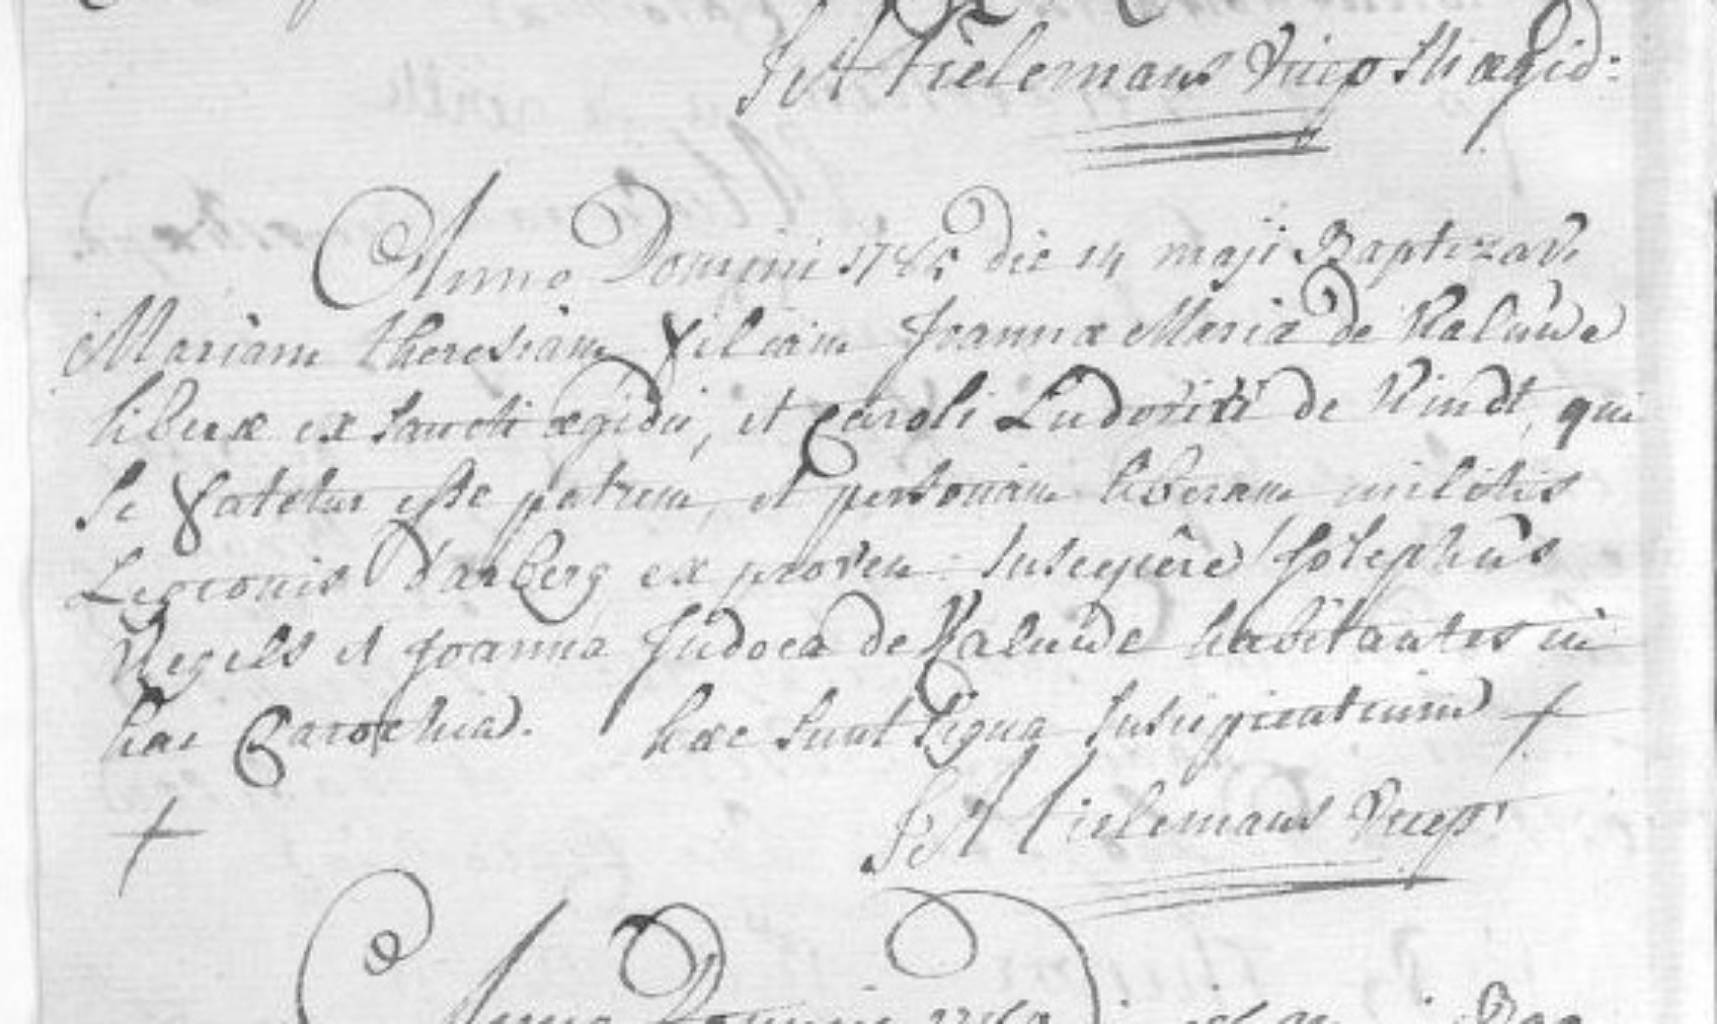 JA Tielemans vicep St ægid:
Anno Domini 178 die 14 maji Baptizavi
Mariam theresiam filiam Joannæ Mariæ de
liberæ ex Sancti ægidii, et Caroli Ludovici de Windt, qui
se fatetur esse patrem, et personam liberam militis
Legionis Darberg ex proven. Suscepêre Josephus
Negels et Joanna Judoca de habitantes in
hac Parochia. hæc sunt signa Suscipientium +
+ JA Tielemans vicep
Anno Domini